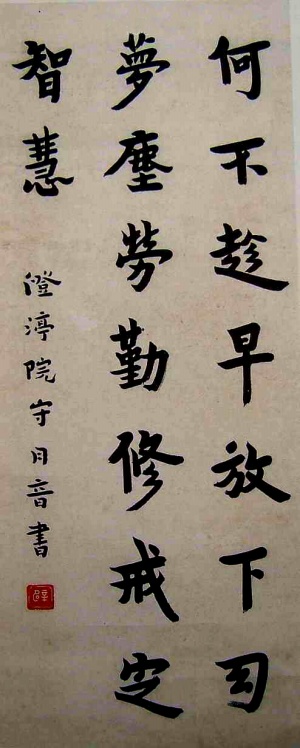 何不趁早放下司
夢塵勞勤修戒定
智慧
澄渟院守月音書